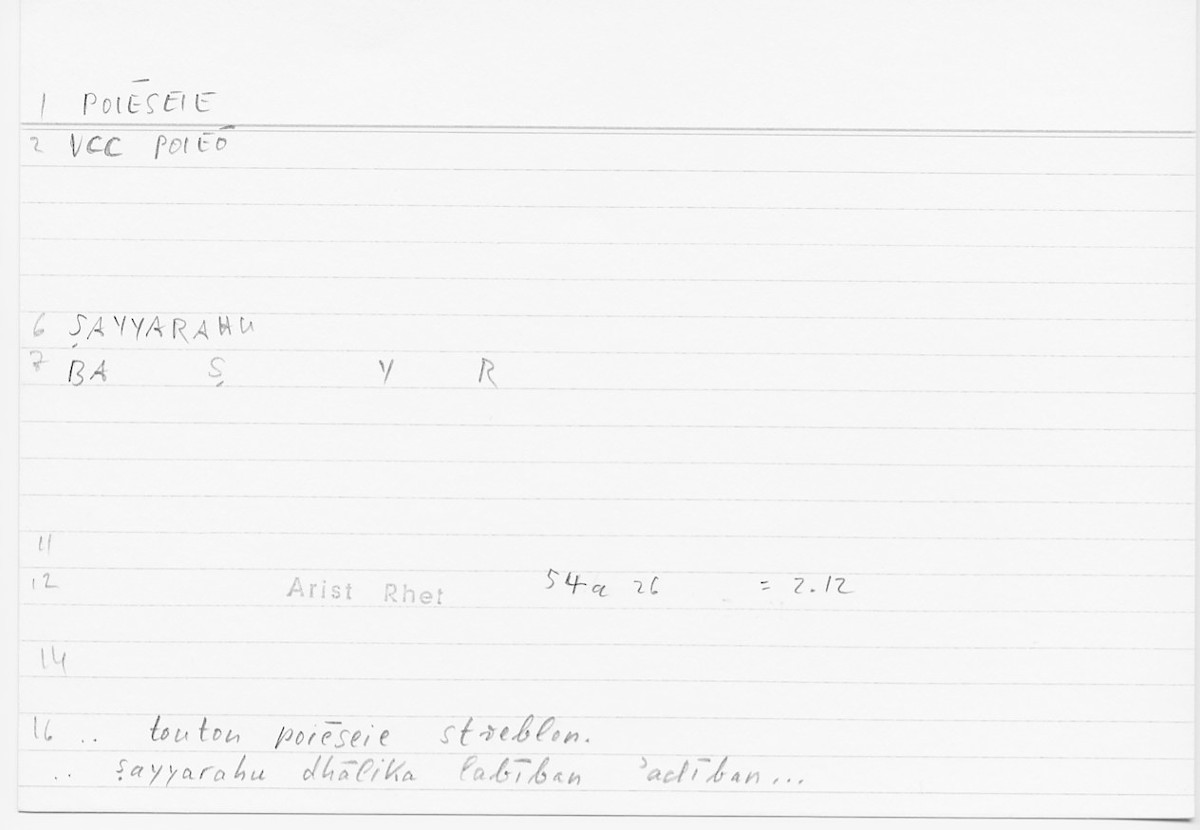 1 POIĒSEIE
2 VCC POIEŌ
6 ṢAYYARAHU
7 BA Ṣ Y R
11
12 Arist Rhet 54a 26 = 2.12
14
16 .. touton poiēseie streblon.
.. ṣayyarahu dhālika labīban ʾadīban...